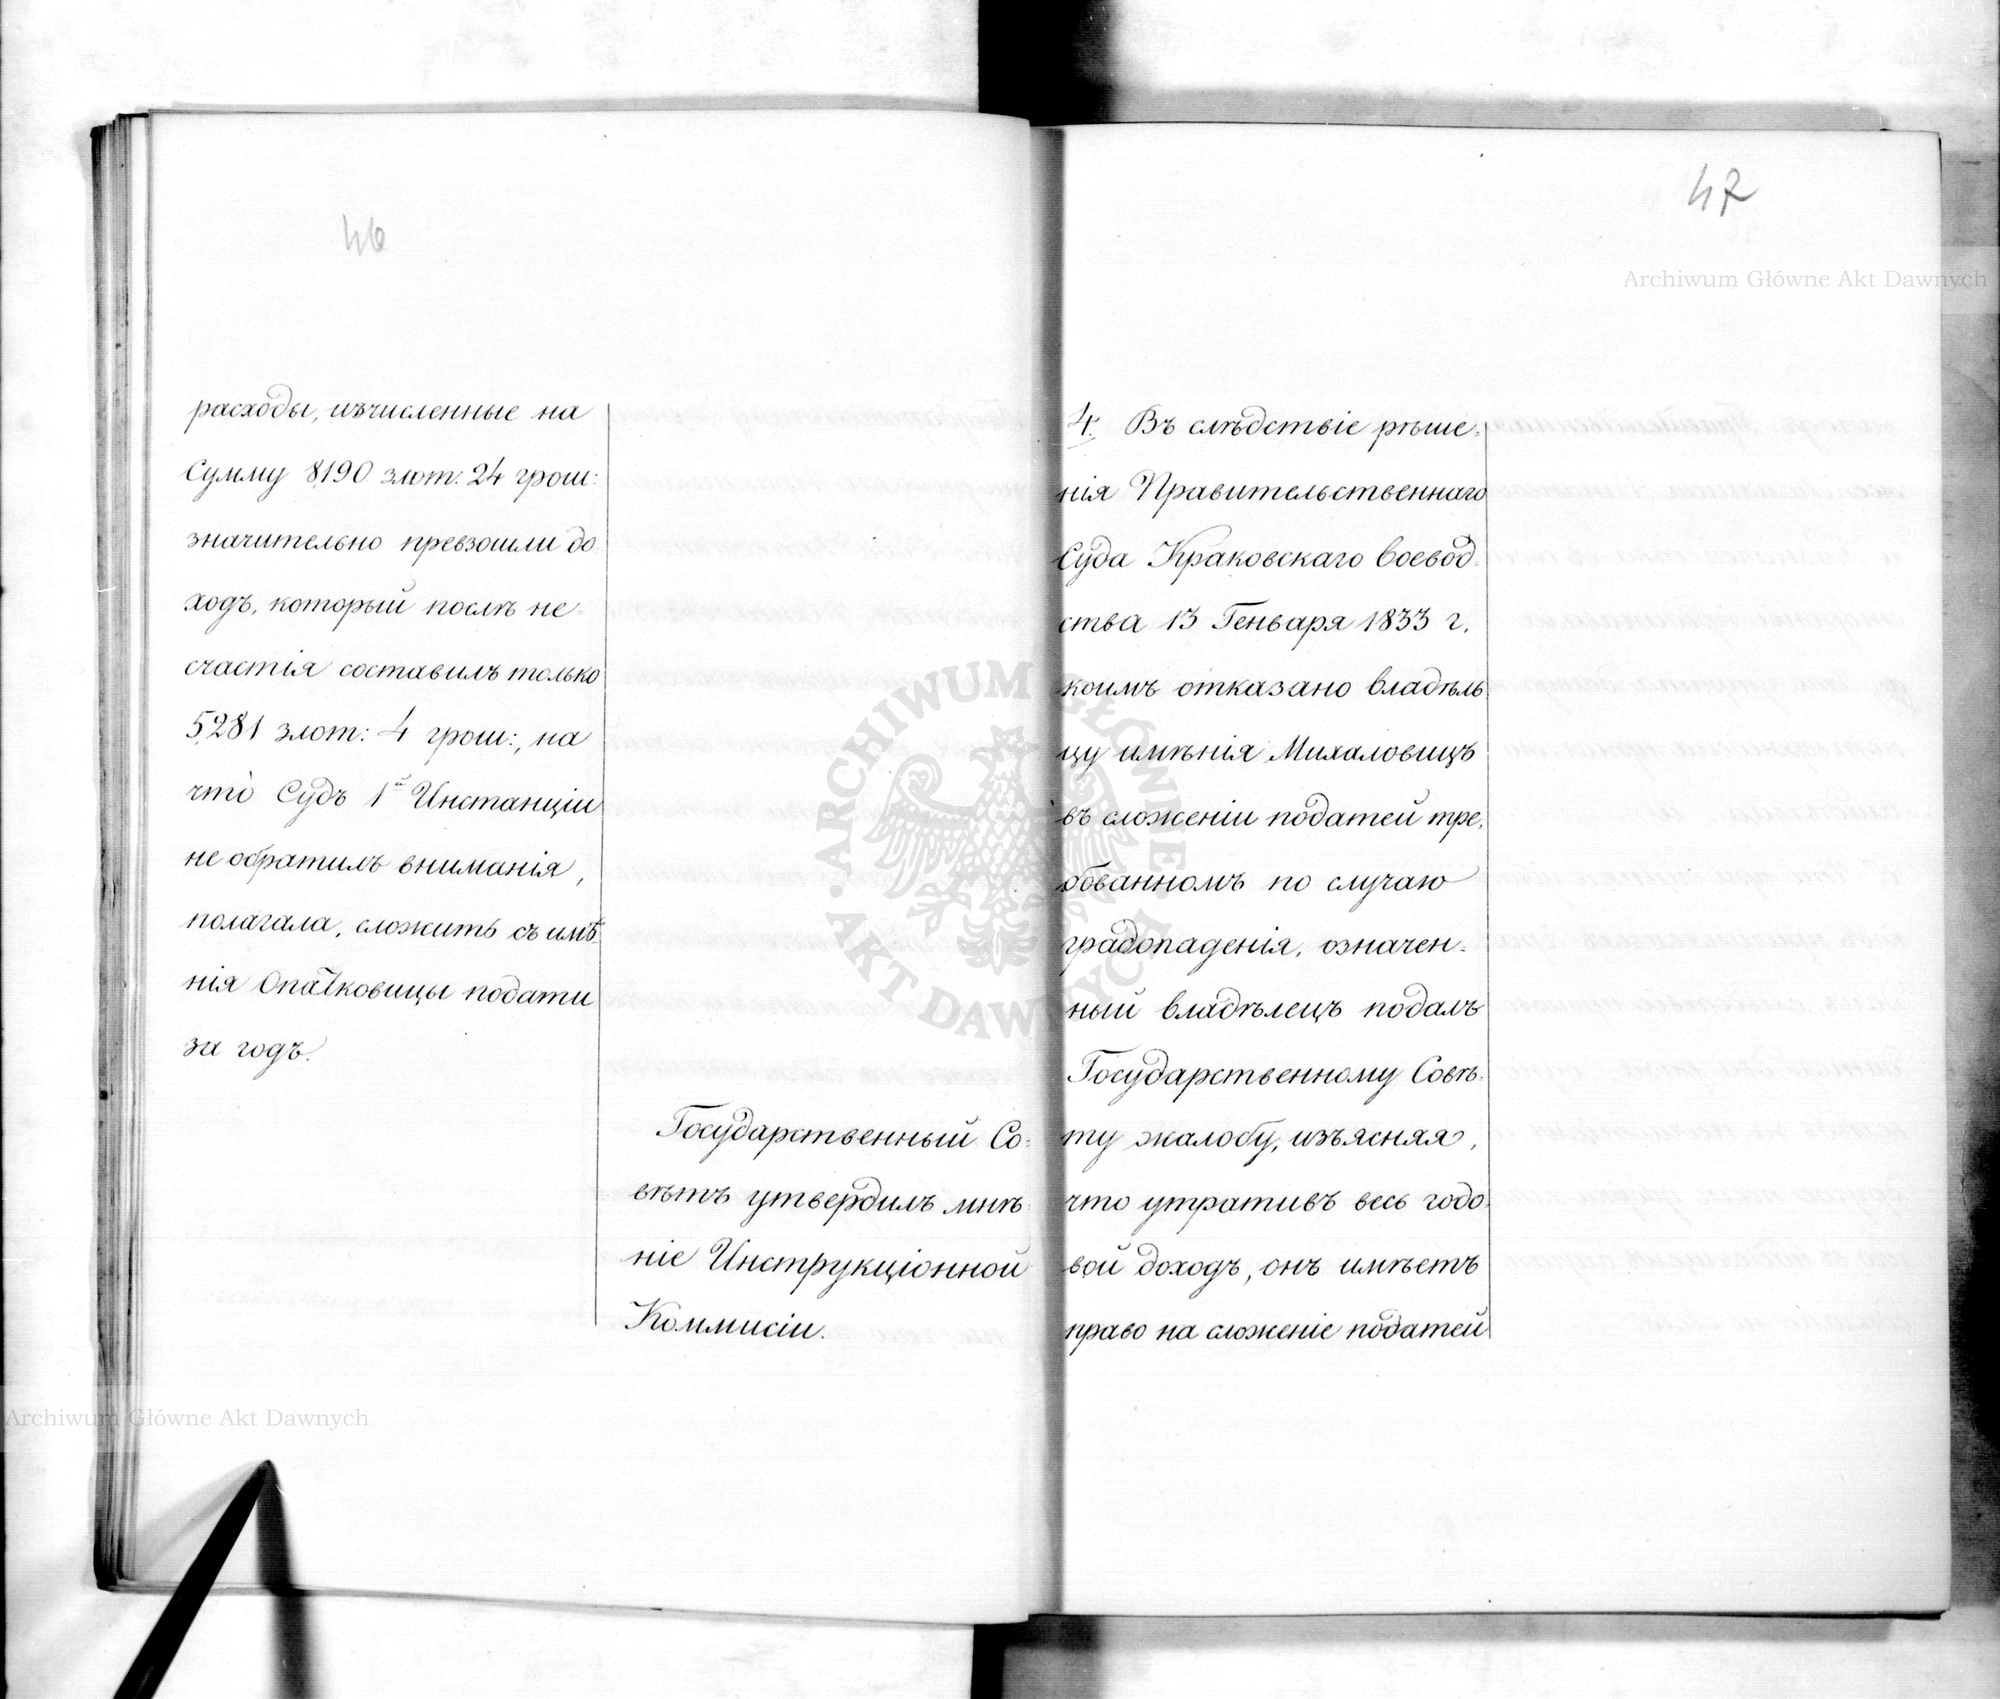 46
расходы, изчисленные на
Сумму 8190 злот: 24 грош:
значительно превзошли до
ходъ, который послѣ не=
счастія составилъ только
5281 злот: 4 грош:, на
что Судъ 1й Инстанціи
не обратилъ вниманія,
полагала, сложить съ имѣ
нія Опатковицы подати
за годъ.
Государственный Со=
вѣтъ утвердилъ мнѣ
ніе Инструкціонной
Коммисіи.
47
4. Въ слѣдствіе рѣше=
нія Правительственнаго
Суда Краковскаго Воевод=
ства 13 Генваря 1833 г.
коимъ отказано владѣль
цу имѣнія Михаловицъ
въ сложеніи податей тре=
бованномъ по случаю
градопаденія, означен=
ный владѣлецъ подалъ
Государственному Совѣ=
ту жалобу, изъясняя,
что утративъ весь годо
вой доходъ, онъ имѣетъ
право на сложеніе податей
Archiwum Główne Akt Dawnych
Archiwum Główne Akt Dawnych
ARCHIWUM GŁÓWNE AKT DAWNYCH